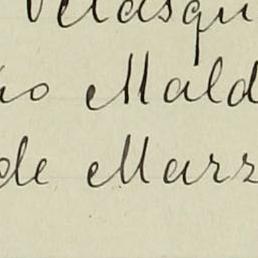 Velasqu
io Mald
de Marz